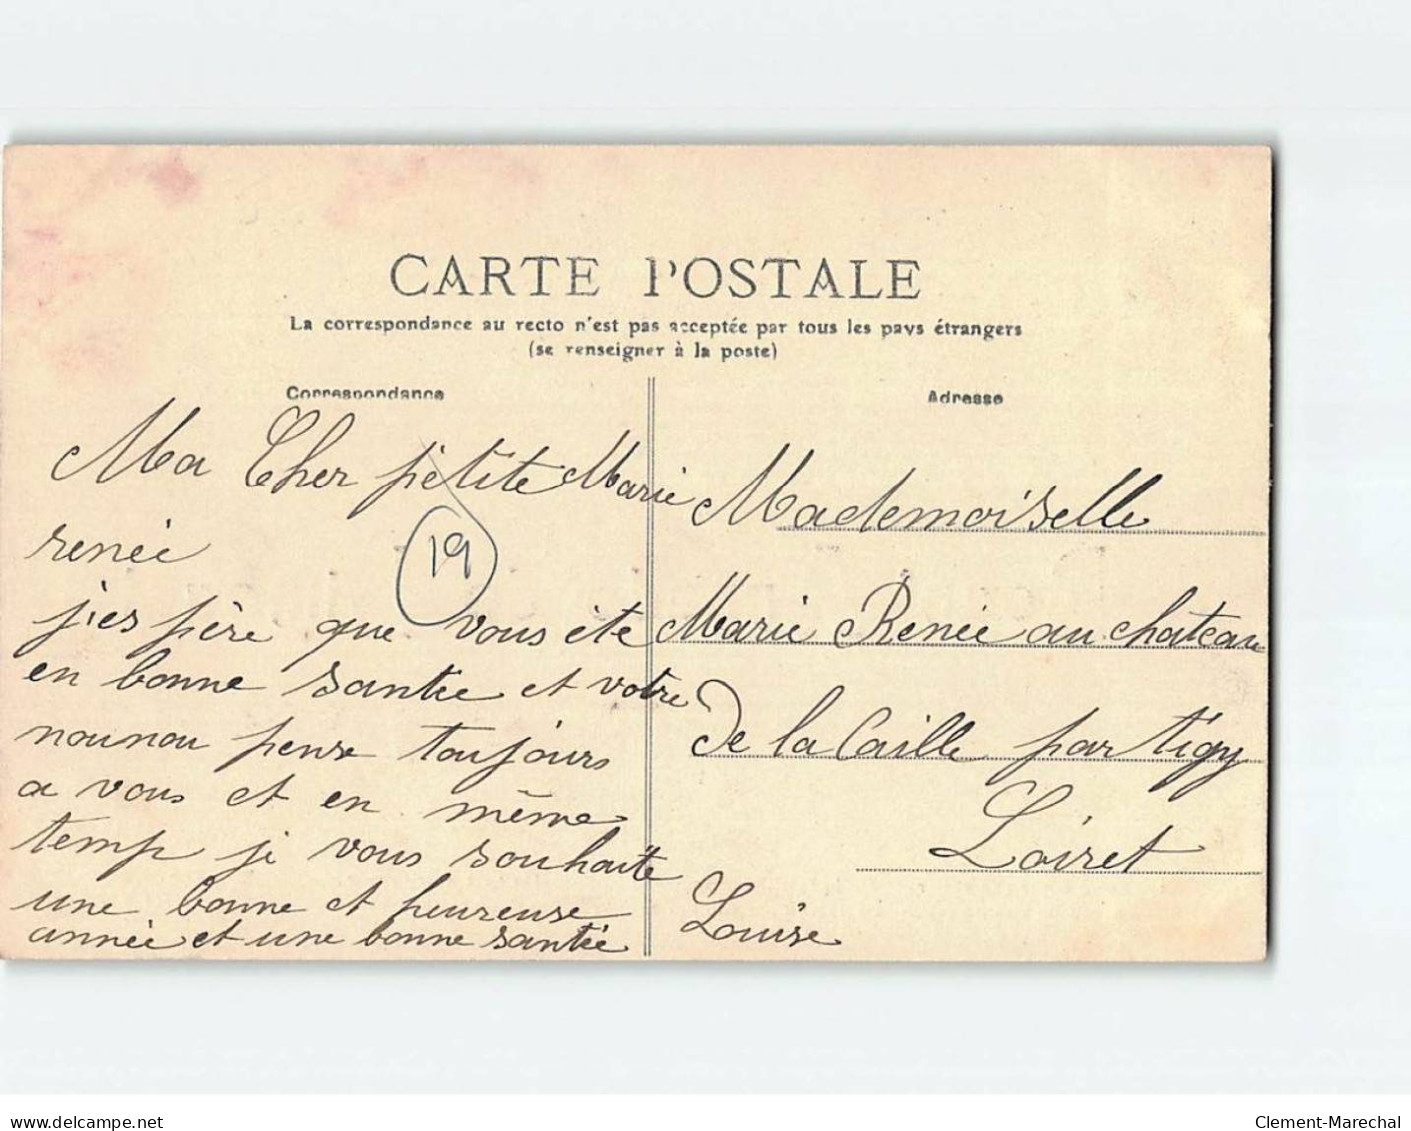 CARTE POSTALE
La correspondance au recto n'est pas acceptée par tous les pays étrangers
(se renseigner à la poste)
Correspondance
Ma Cher petite Marie
renée
19
j'espère que vous ète
en bonne santée et votre
nounou pense toujours
a vous et en même
temp je vous souhaite
une bonne et heureuse
année et une bonne santée
Louise
Adresse
Mademoiselle
Marie Renée au chateau
de la Caille par tigy
Loiret
www.delcampe.net
Clement-Marechal